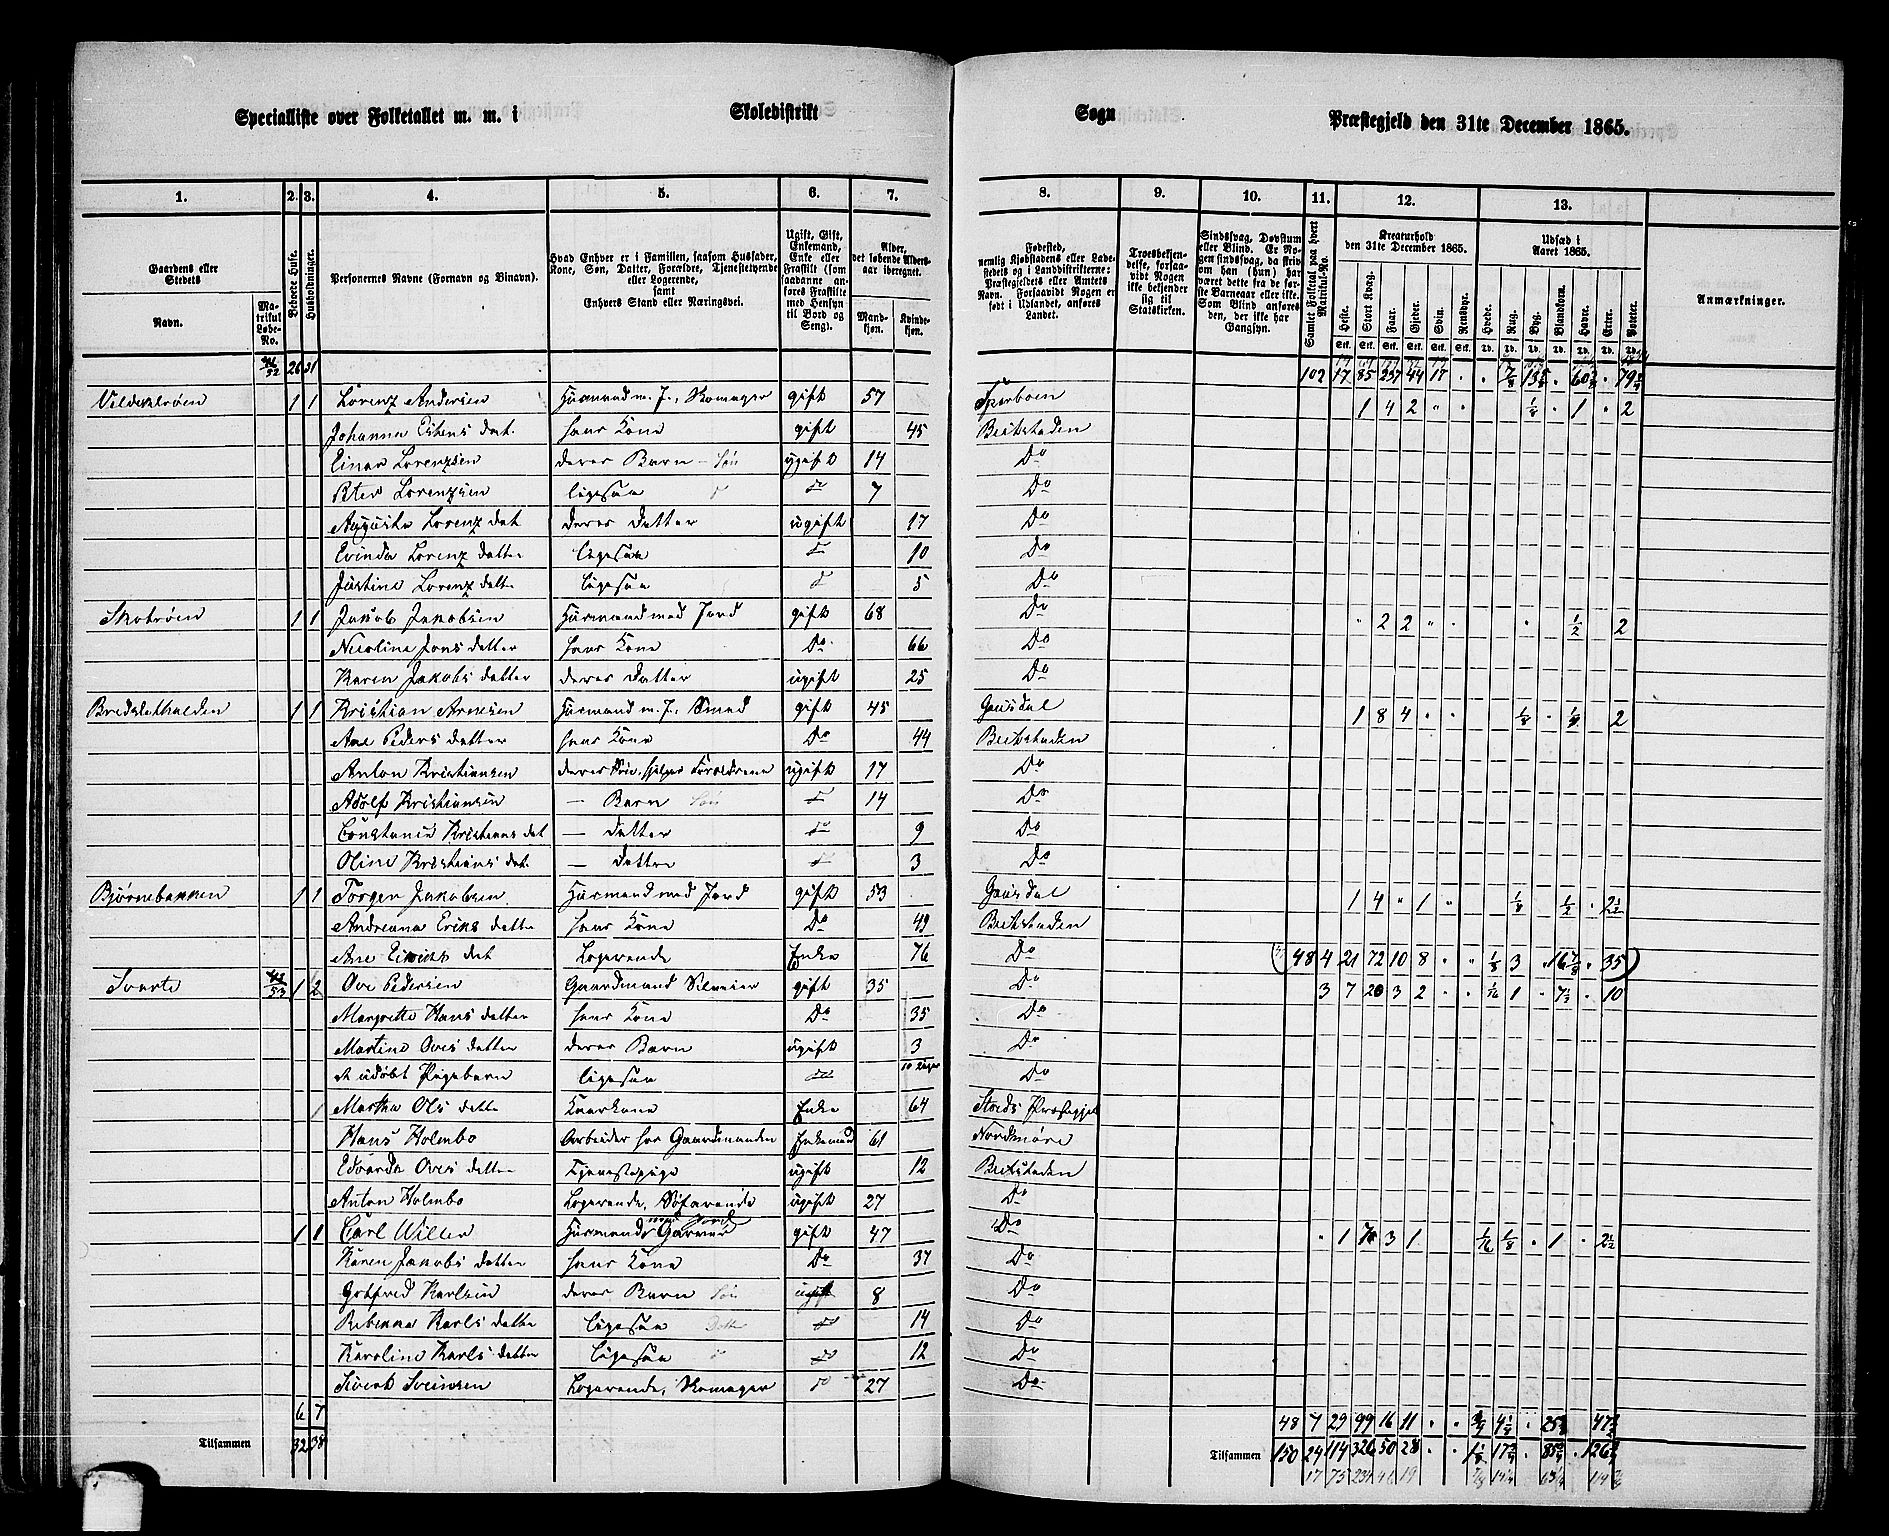 Specialliste over Folketallet m. m. i Skoledistrikt Sogn Præstegjeld den 31te December 1865.
1. 2. 3. 4. 5. 6. 7. 8. 9. 10. 11. 12. 13.
Gaardens eller Stedets Navn. Matrikul Løbe-No. Beboede Huse. Husholdninger. Personernes Navne (Fornavn og Binavn). Hvad Enhver er i Familien, saasom Husfader, Kone, Søn, Datter, Forældre, Tjenestetyende eller Logerende, samt Enhvers Stand eller Næringsvei. Ugift, Gift, Enkemand, Enke eller Fraskilt (som saadanne anføres Fraskilte med Hensyn til Bord og Seng). Alder, det løbende Aldersaar iberegnet. Mandkjøn. Kvindekjøn.
Fødested, nemlig Kjøbstadens eller Ladestedets og i Landdistrikterne: Præstegjeldets eller Amtets Navn. Forsaavidt Nogen er født i Udlandet, anføres Landet. Troesbekjendelse, forsaavidt Nogen ikke bekjender sig til Statskirken. Sindssvag, Døvstum eller Blind. Er Nogen sindssvag, da skrives om han (hun) har været dette fra de første Barneaar eller ikke. Som Blind anføres den, der ikke har Gangsyn. Samlet Folketal paa hvert Matrikul-No. Kreaturhold den 31te December 1865. Udsæd i Aaret 1865. Anmærkninger.
Heste. Stort Kvæg. Faar. Gjeder. Svin. Rensdyr. Hvede. Rug. Byg. Blandkorn. Havre. Erter. Poteter.
26 31 102 17 85 237 44 17
Lorenz Andersen Husmand m. J., Skomager gift 57 Sparboen 1 4 2 1 2
Johanna Estens dat. hans Kone gift 45 Beitstaden
Einar Lorenzsen deres Barn - Søn ugift 14 Do
Peter Lorenzsen ligesaa do 7 Do
Augusta Lorenz dat deres Datter ugift 17 Do
Evinda Lorenz datter ligesaa do 10 Do
Justine Lorenz datter ligesaa do 5 Do
Skotrøen 1 1 Jakob Jakobsen Husmand med Jord gift 68 Do 2 2 1/2 2
Nicoline Jons datter hans Kone Do 66 Do
Karen Jakobs datter deres Datter ugift 25 Do
1 1 Kristian Arnesen Husmand m. J., Smed gift 45 Gausdal 1 8 4 1/8 2
Ane Peders datter hans Kone Do 44 Beitstaden
Anton Kristiansen deres Søn, hjelper Forældrene ugift 17 Do
Adolf Kristiansen — Barn Søn do 14 Do
Constanse Kristians dat — datter do 9 Do
Oline Kristians dat — datter do 3 Do
Bjørnebakken 1 1 Torger Jakobsen Husmand med Jord gift 53 Gausdal 1 4 1 1/8 1/2 2 1/2
Andreanna Eriks datter hans Kone Do 49 Beitstaden
Ane Eriks dat Logerende Enke 76 Do 48 4 21 72 10 8 1/8 3 16 7/8 35
Svarte 53 1 2 Ove Pedersen Gaardmand Selveier gift 35 Do 3 7 20 3 2 1/16 1 10
Margrethe Hans datter hans Kone Do 35 Do
Martine Oves datter deres Barn ugift 3 Do
et udøbt Pigebarn ligesaa do 10 Dage Do
1 Martha Ols datter Kaarkone Enke 64 Stods Præstegjel
Hans Holmbo Arbeider hos Gaardmanden Enkemand 61 Nordmøre
Edvarda Oves datter Tjenestepige ugift 12 Beitstaden
Anton Holmbo Logerende, Søfarende ugift 27 Do
1 1 Carl Willer Husmand med Jord Garver gift 47 Do 1 7 3 1 1/16 1/8 1 2 1/2
Karen Jakobs datter hans Kone Do 37 Do
Gotfred Karlsen deres Barn Søn ugift 8 Do
Rebekka Karls datter ligesaa Datter do 14 Do
Karoline Karls datter ligesaa do 12 Do
Sivert Svensen Logerende, Skomager do 27 Do
6 7 48 7 29 99 16 11
Tilsammen 32 38 Tilsammen 150 24 114 326 50 28
17 75 234 46 19